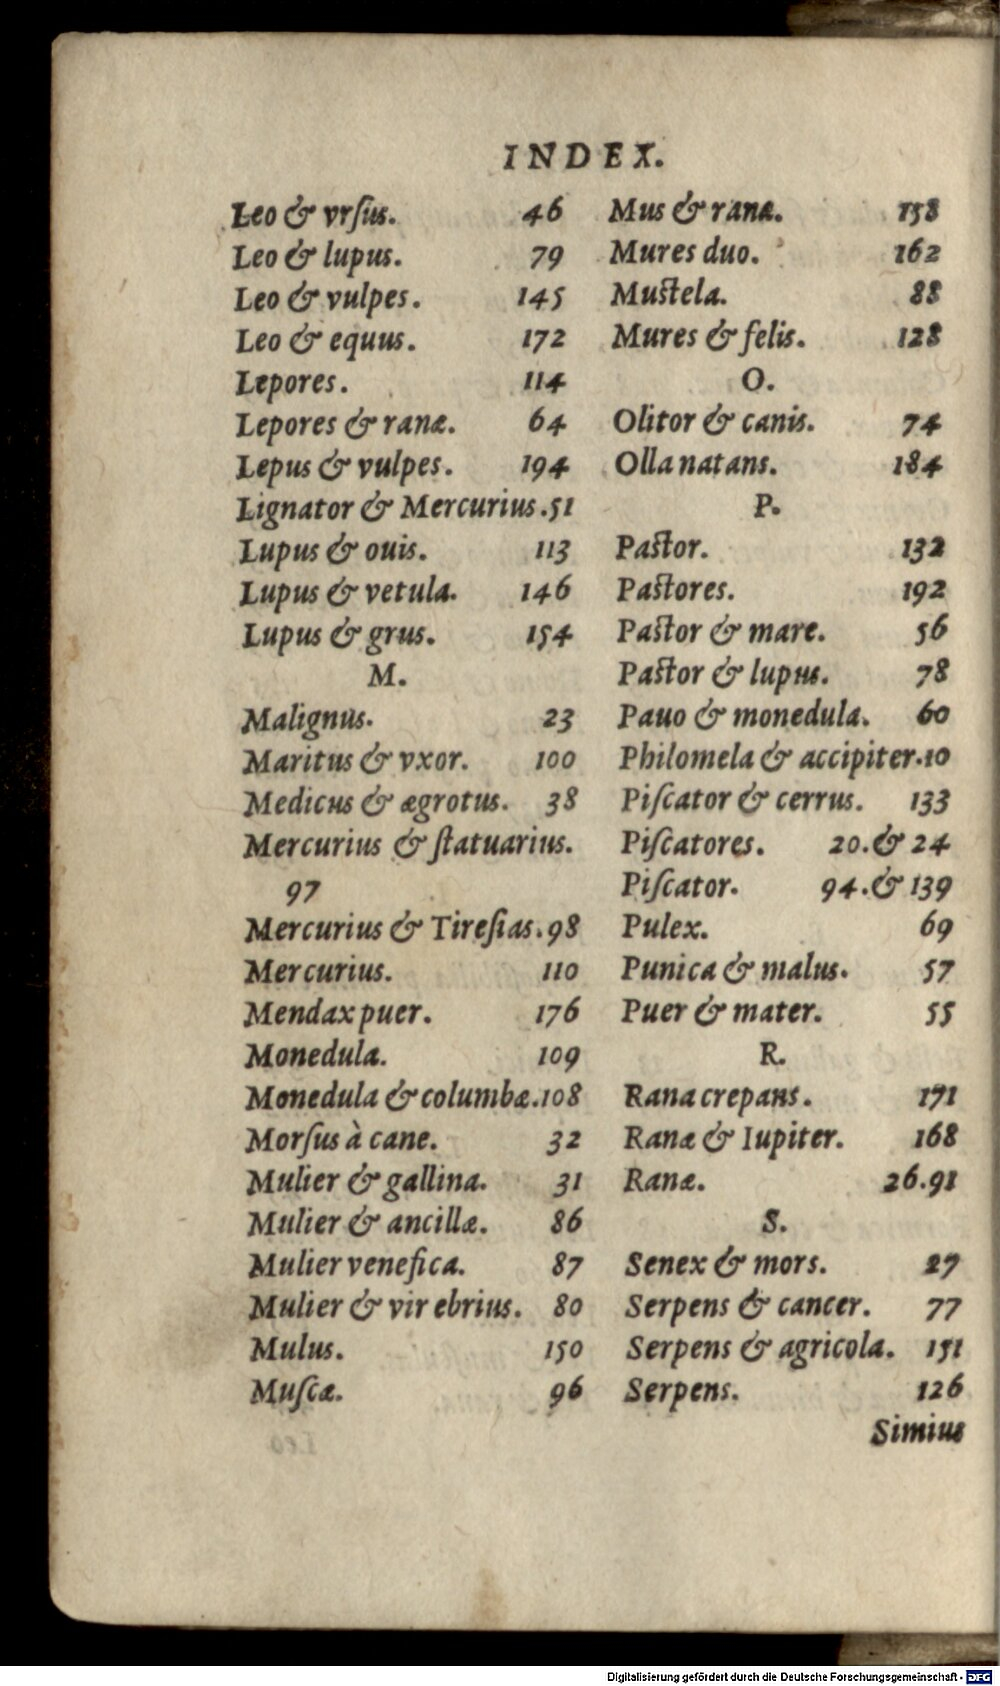 INDEX.
Leo & vrſus. 46
Leo & lupus. 79
Leo & vulpes. 145
Leo & equus. 172
Lepores. 114
Lepores & ranæ. 64
Lepus & vulpes. 194
Lignator & Mercurius. 51
Lupus & ouis. 113
Lupus & vetula. 146
Lupus & grus. 154
M.
Malignus. 23
Maritus & vxor. 100
Medicus & ægrotus. 38
Mercurius & ſtatuarius.
97
Mercurius & Tireſias. 98
Mercurius. 110
Mendax puer. 176
Monedula. 109
Monedula & columbæ. 108
Morſus à cane. 32
Mulier & gallina. 31
Mulier & ancillæ. 86
Mulier venefica. 87
Mulier & vir ebrius. 80
Mulus. 150
Muſcæ. 96
Mus & ranæ. 158
Mures duo. 162
Muſtela. 88
Mures & felis. 128
O.
Olitor & canis. 74
Olla natans. 184
P.
Paſtor. 132
Paſtores. 192
Paſtor & mare. 56
Paſtor & lupus. 78
Pauo & monedula. 60
Philomela & accipiter. 10
Piſcator & cerrus. 133
Piſcatores. 20. & 24
Piſcator. 94. & 139
Pulex. 69
Punica & malus. 57
Puer & mater. 55
R.
Rana crepans. 171
Ranæ & Iupiter. 168
Ranæ. 26. 91
S.
Senex & mors. 27
Serpens & cancer. 77
Serpens & agricola. 151
Serpens. 126
Simius
Digitalisierung gefördert durch die Deutsche Forschungsgemeinschaft - DFG